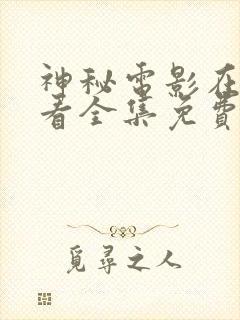 神秘电影在
看全集免費
觅尋之人